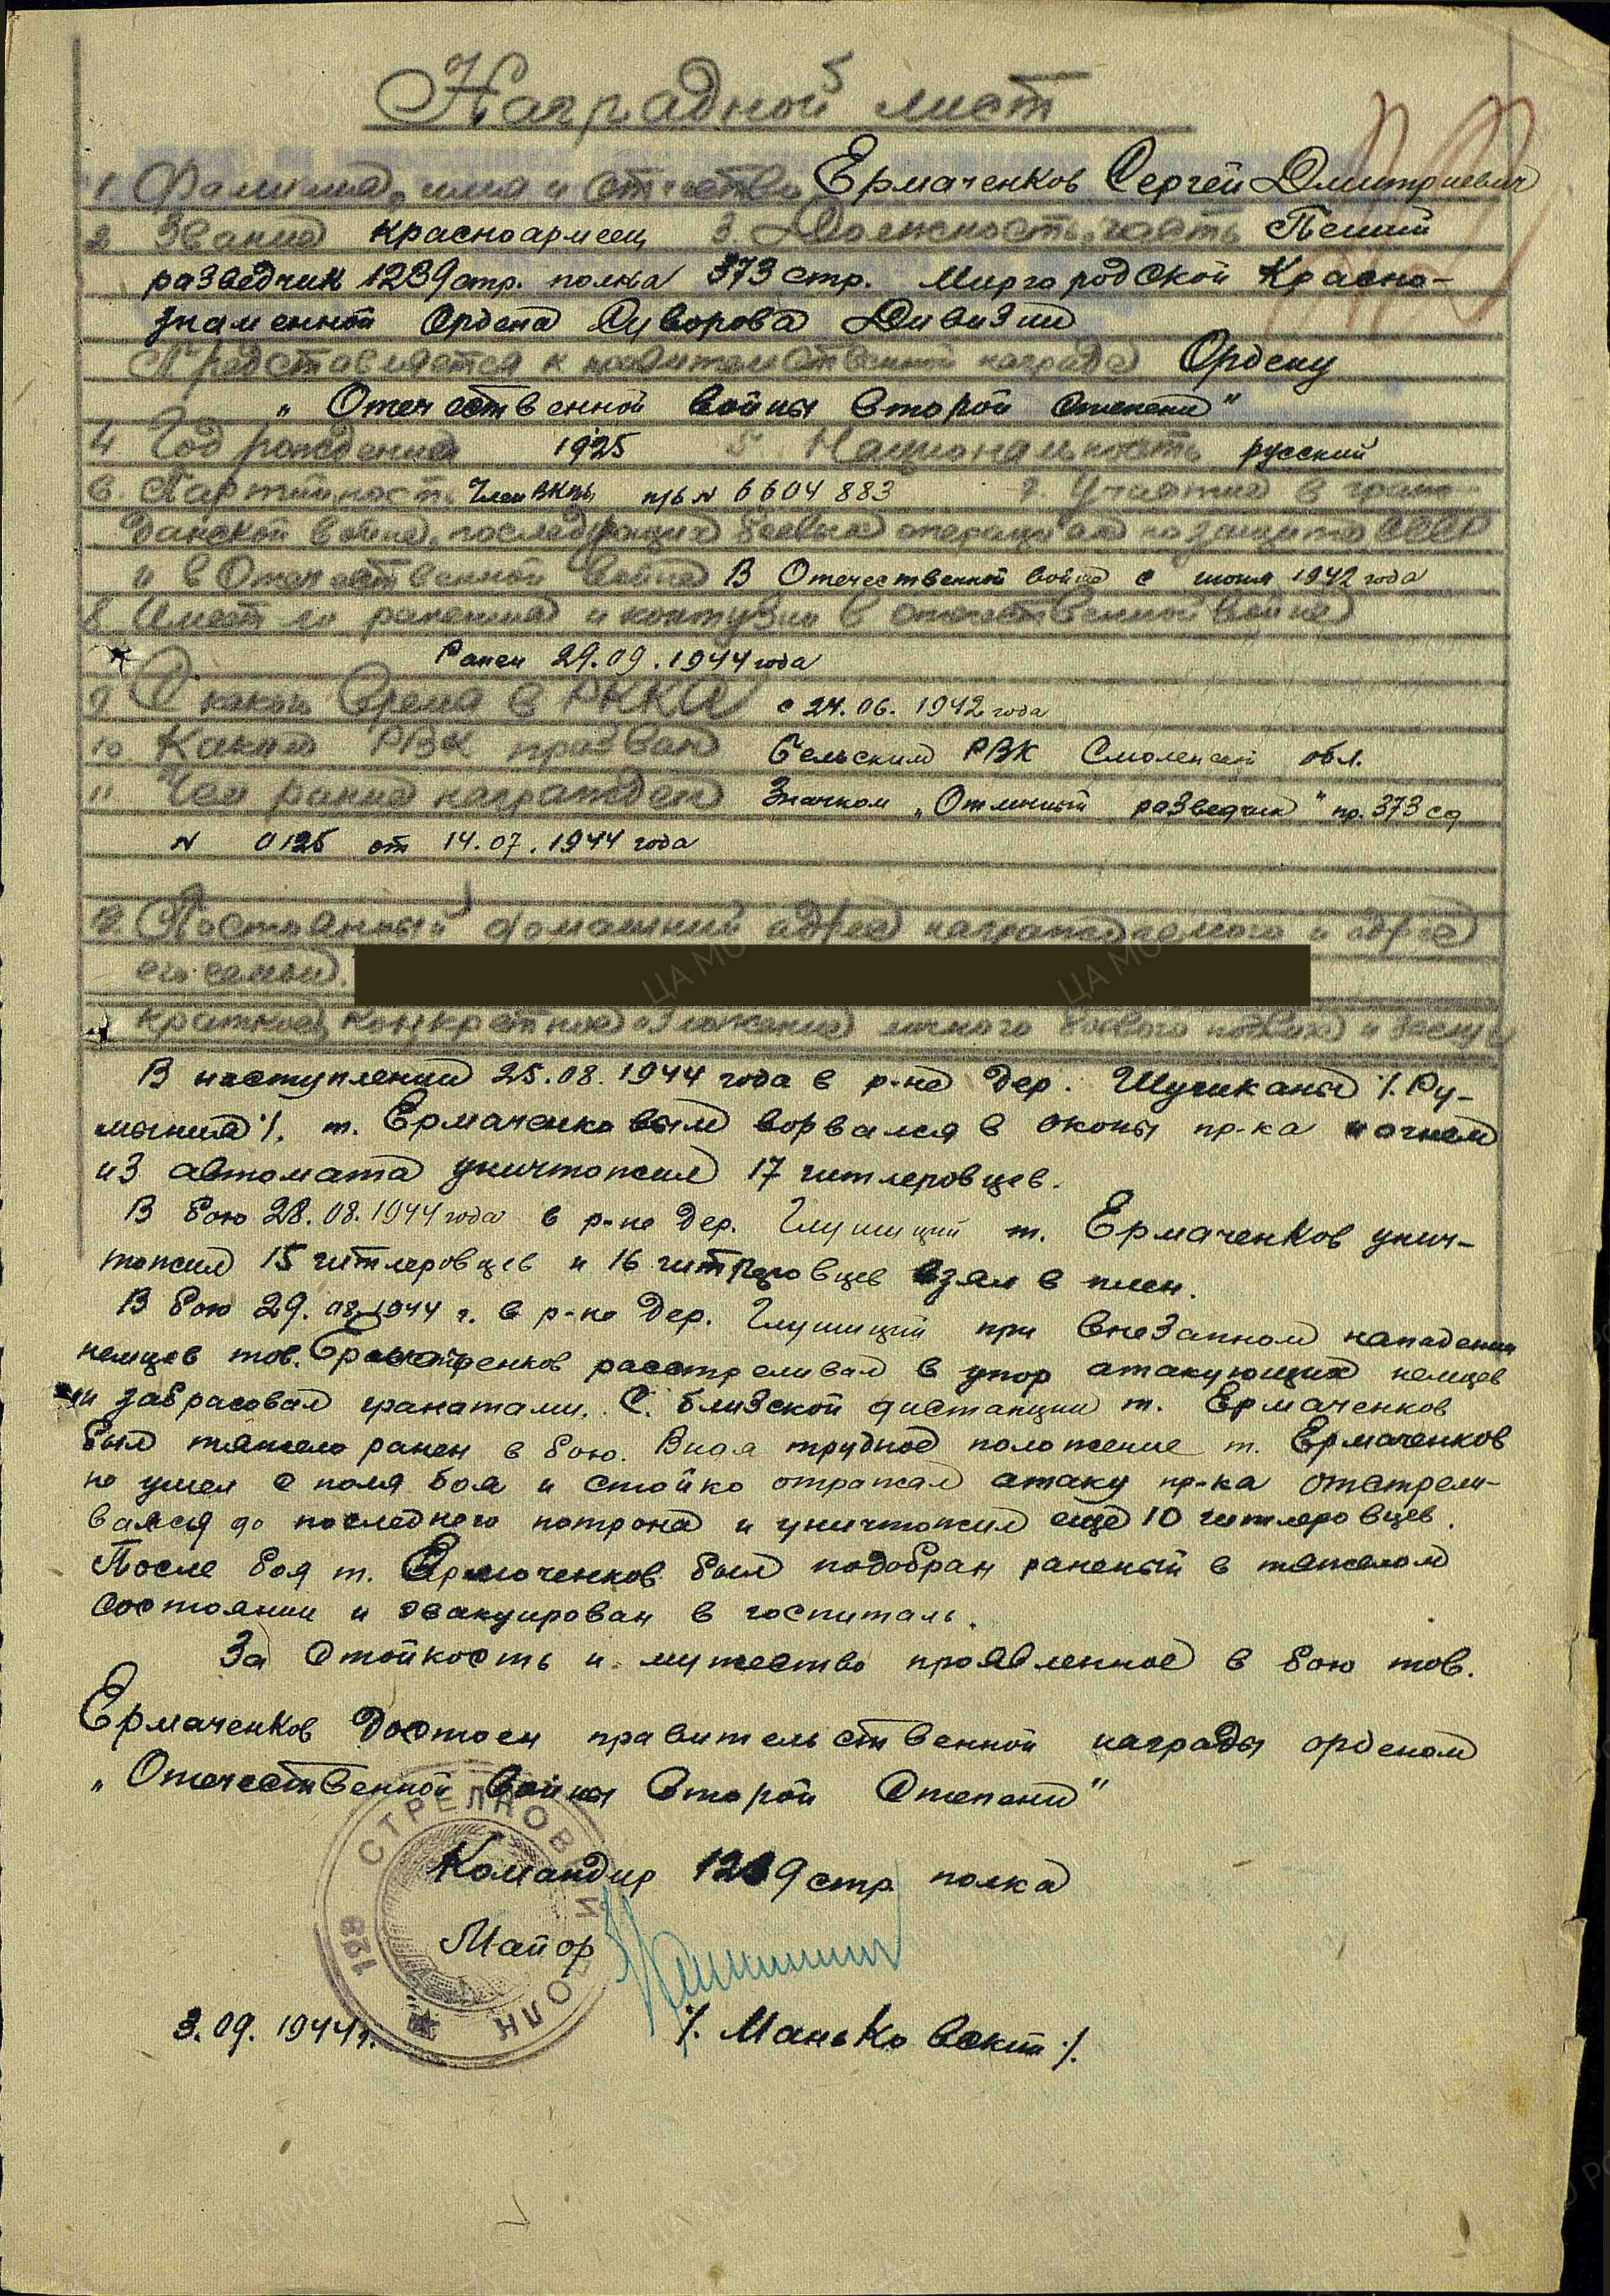 Наградной лист
1. Фамилия, имя и отчество Ермаченков Сергей Дмитриевич
2 Звание красноармеец 3. Должность, часть Пеший
разведчик 1239 стр. полка 373 стр. Миргородской Красно-
знаменной Ордена Суворова Дивизии
Представляется к правительственной награде Ордену
„Отечественной войны второй степени"
4 Год рождения 1925 5 Национальность русский
6. Партийность Член ВКПб п/б N 6604883 7. Участие в граж-
данской войне, последующих боевых операциях по защите СССР
и в Отечественной войне В Отечественной войне с июня 1942 года
8 Имеет ли ранения и контузии в отечественной войне
Ранен 29.09.1944 года
9 С какого времени в РККА с 24.06.1942 года
10 Каким РВК призван Бельским РВК Смоленской обл.
11 Чем ранее награжден Значком „Отличный разведчик" пр. 373 сд
N 0125 от 14.07.1944 года
12. Постоянный домашний адрес награждаемого и адрес
его семьи.
Краткое, конкретное изложение личного боевого подвига и заслуг
В наступлении 25.08.1944 года в р-не дер. /. Ру-
мыния /. т. Ермаченковым ворвался в окопы пр-ка и огнем
из автомата уничтожил 17 гитлеровцев.
В бою 28.08.1944 года в р-не дер. Глушиций т. Ермаченков унич-
тожил 15 гитлеровцев и 16 гитлеровцев взял в плен.
В бою 29.08.1944 г. в р-не дер. Глушиций при внезапном нападении
немцев тов. Ермаченков расстреливал в упор атакующих немцев
и забрасовал гранатами. С близской дистанции т. Ермаченков
был тяжело ранен в бою. Видя трудное положение т. Ермаченков
не ушел с поля боя и стойко отражал атаку пр-ка отстрели-
вался до последнего патрона и уничтожил еще 10 гитлеровцев.
После боя т. Ермаченков был подобран раненый в тяжелом
состоянии и эвакуирован в госпиталь.
За стойкость и мужество проявленное в бою тов.
Ермаченков достоен правительственной награды орденом
„Отечественной войны второй степени"
СТРЕЛКОВЫЙ ПОЛК
Командир 1239 стр. полка
Майор
3.09.1944 г. /. Маньковский /.
ЦА МО РФ